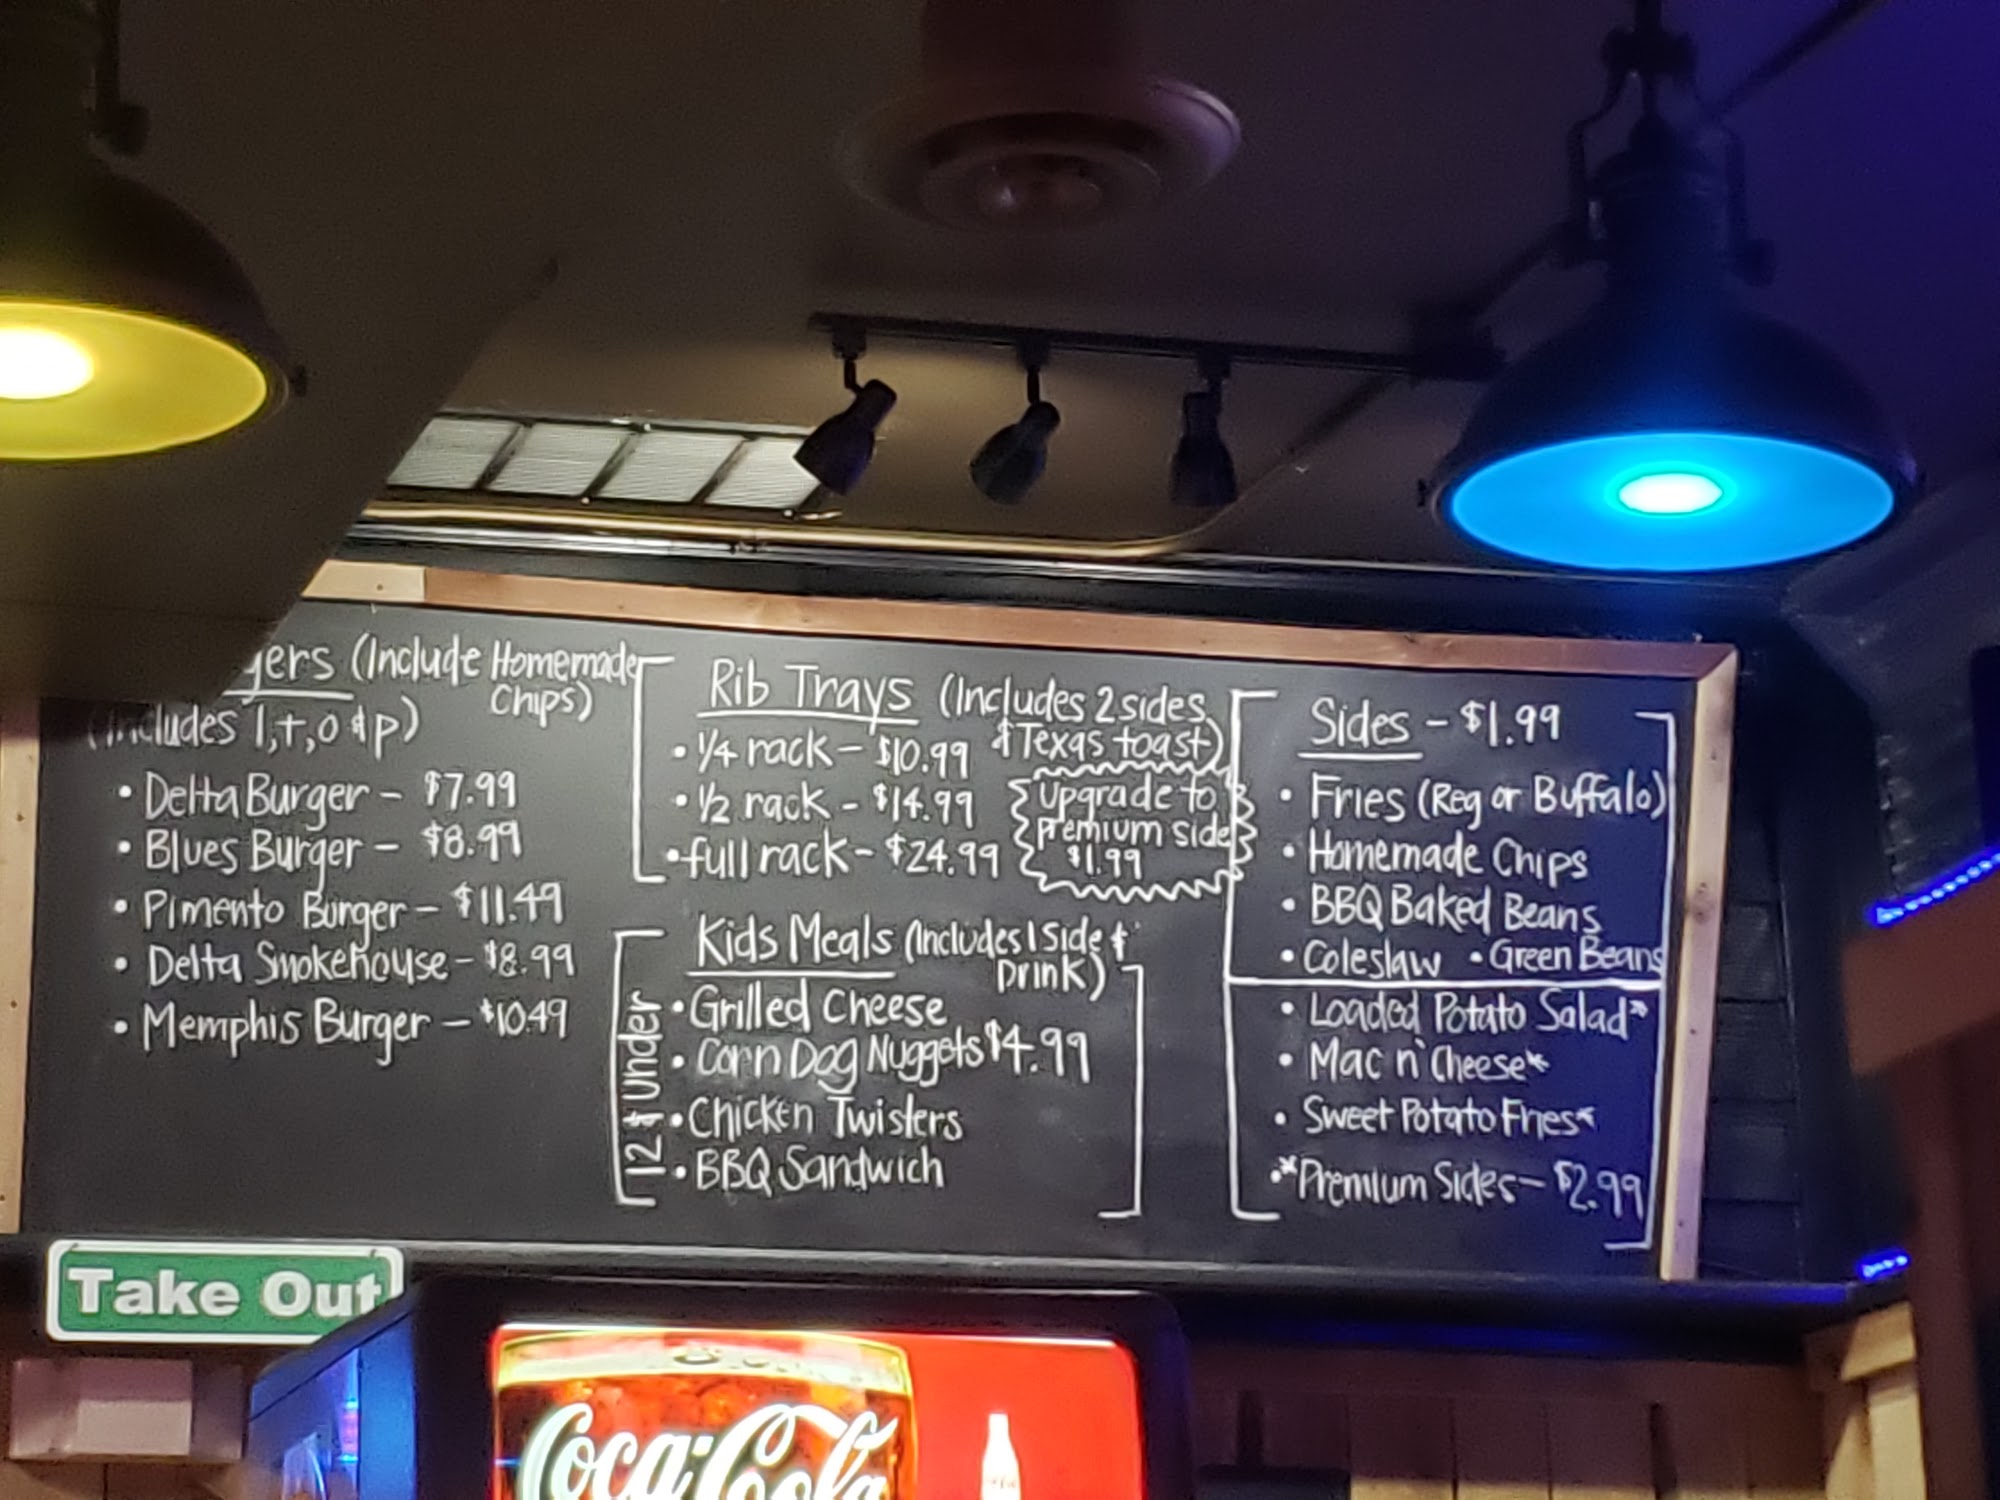 gers (Include Homemade
Chips)
(includes l,t,o & p)
• Delta Burger – $7.99
• Blues Burger – $8.99
• Pimento Burger – $11.49
• Delta Smokehouse – $8.99
• Memphis Burger – $10.49
Rib Trays (Includes 2 sides
& Texas toast)
• 1/4 rack – $10.99
• 1/2 rack – $14.99
• full rack – $24.99
Upgrade to
premium side
$1.99
Kids Meals (Includes 1 Side &
Drink)
12 & Under
• Grilled Cheese
• Corn Dog Nuggets $4.99
• Chicken Twisters
• BBQ Sandwich
Sides – $1.99
• Fries (Reg or Buffalo)
• Homemade Chips
• BBQ Baked Beans
• Coleslaw • Green Beans
• Loaded Potato Salad*
• Mac n' Cheese*
• Sweet Potato Fries*
• *Premium Sides – $2.99
Take Out
Coca-Cola